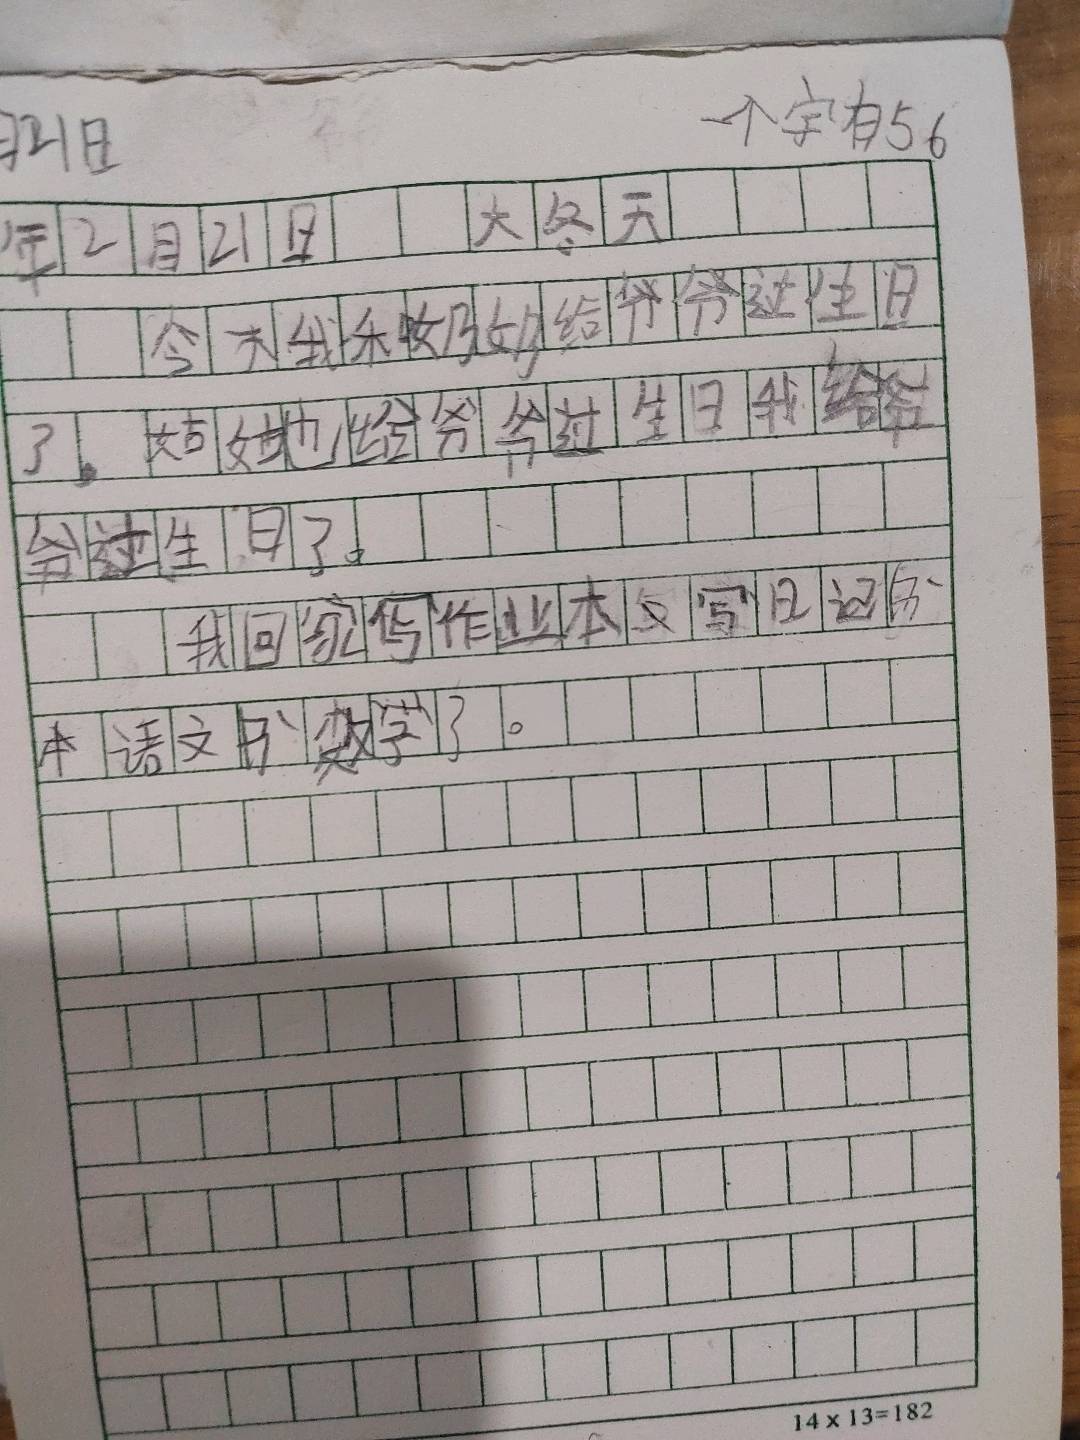 月21日 一个字有56
年2月21日 大冬天
今天我和奶奶给爷爷过生日
了。姑姑也给爷爷过生日我给爷
爷过生日了。
我回家写作业本又写日记书
本语文书数学了。
14×13=182